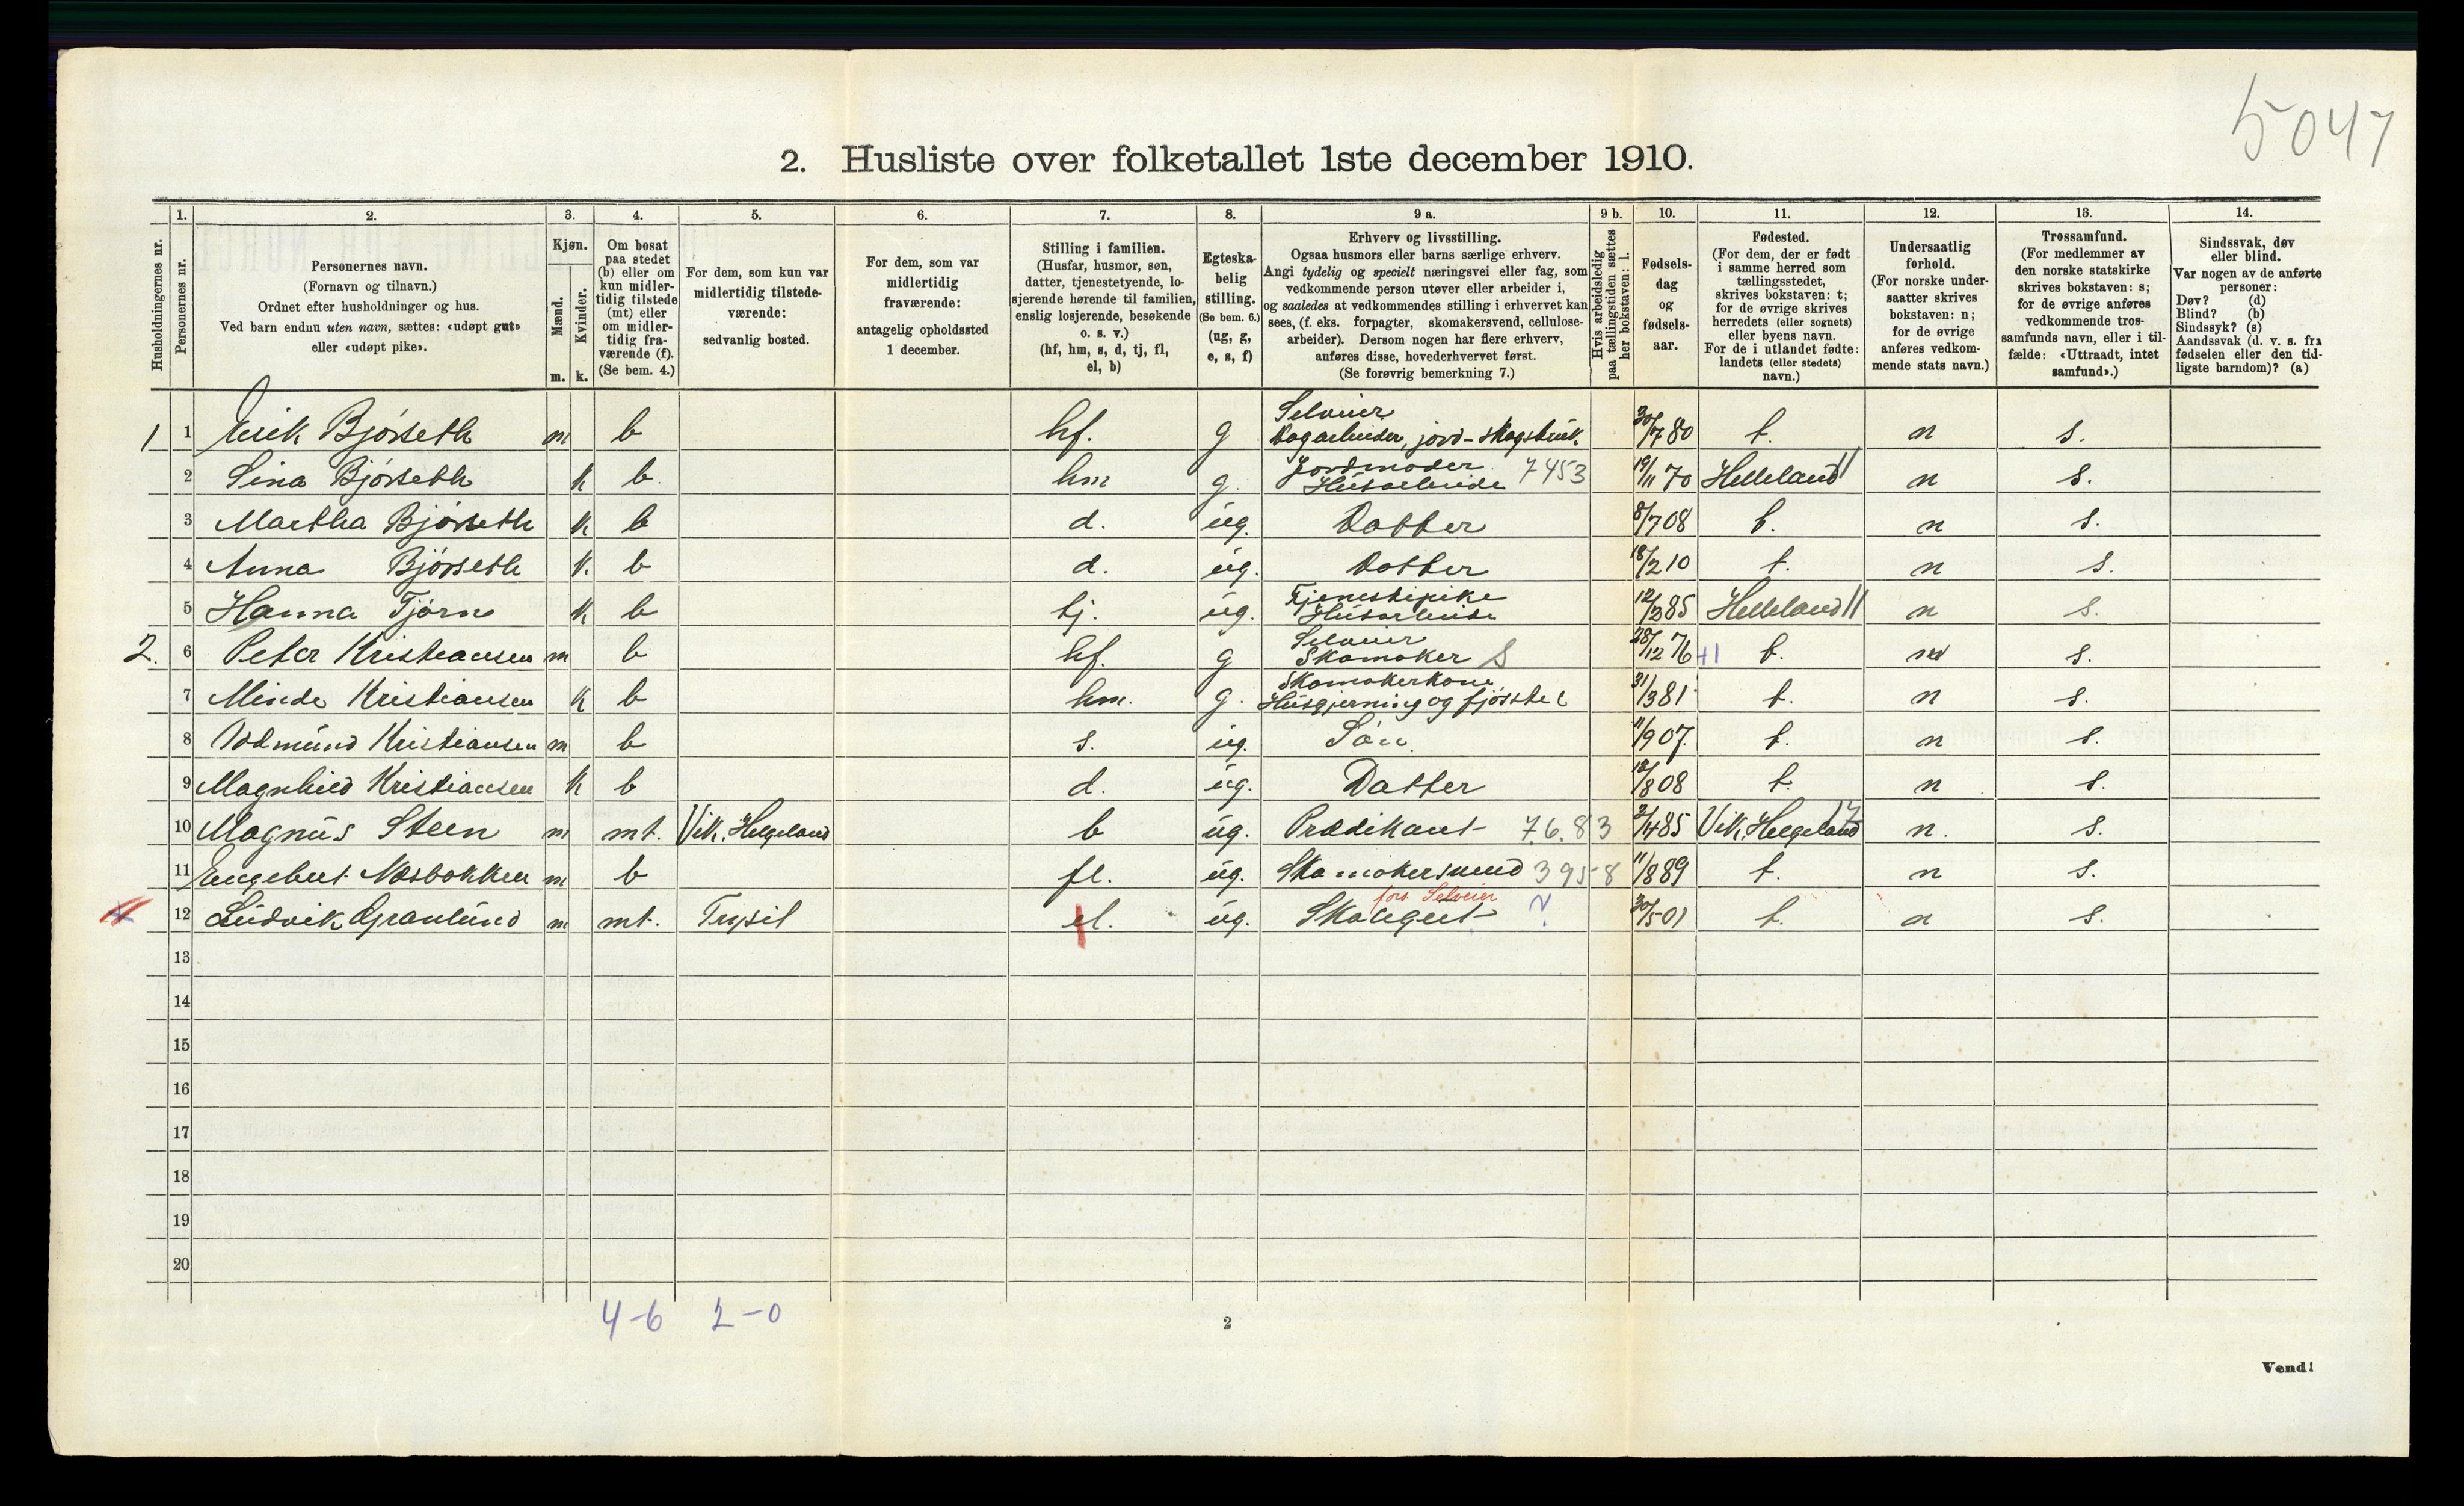 5047
2. Husliste over folketallet 1ste december 1910.
Husholdningernes nr.
1.
Personernes nr.
2.
Personernes navn.
(Fornavn og tilnavn.)
Ordnet efter husholdninger og hus.
Ved barn endnu uten navn, sættes: «udøpt gut»
eller «udøpt pike».
3.
Kjøn.
Mænd.
Kvinder.
m. k.
4.
Om bosat
paa stedet
(b) eller om
kun midler-
tidig tilstede
(mt) eller
om midler-
tidig fra-
værende (f).
(Se bem. 4.)
5.
For dem, som kun var
midlertidig tilstede-
værende:
sedvanlig bosted.
6.
For dem, som var
midlertidig
fraværende:
antagelig opholdssted
1 december.
7.
Stilling i familien.
(Husfar, husmor, søn,
datter, tjenestetyende, lo-
sjerende hørende til familien,
enslig losjerende, besøkende
o. s. v.)
(hf, hm, s, d, tj, fl,
el, b)
8.
Egteska-
belig
stilling.
(Se bem. 6.)
(ug, g,
e, s, f)
9 a.
Erhverv og livsstilling.
Ogsaa husmors eller barns særlige erhverv.
Angi tydelig og specielt næringsvei eller fag, som
vedkommende person utøver eller arbeider i,
og saaledes at vedkommendes stilling i erhvervet kan
sees, (f. eks. forpagter, skomakersvend, cellulose-
arbeider). Dersom nogen har flere erhverv,
anføres disse, hovederhvervet først.
(Se forøvrig bemerkning 7.)
9 b.
Hvis arbeidsledig
paa tællingstiden sættes
her bokstaven: l.
10.
Fødsels-
dag
og
fødsels-
aar.
11.
Fødested.
(For dem, der er født
i samme herred som
tællingsstedet,
skrives bokstaven: t;
for de øvrige skrives
herredets (eller sognets)
eller byens navn.
For de i utlandet fødte:
landets (eller stedets)
navn.)
12.
Undersaatlig
forhold.
(For norske under-
saatter skrives
bokstaven: n;
for de øvrige
anføres vedkom-
mende stats navn.)
13.
Trossamfund.
(For medlemmer av
den norske statskirke
skrives bokstaven: s;
for de øvrige anføres
vedkommende tros-
samfunds navn, eller i til-
fælde: «Uttraadt, intet
samfund».)
14.
Sindssvak, døv
eller blind.
Var nogen av de anførte
personer:
Døv? (d)
Blind? (b)
Sindssyk? (s)
Aandssvak (d. v. s. fra
fødselen eller den tid-
ligste barndom)? (a)
1 1 Erik Bjørseth m b hf. g Selveier Dagarbeider, jord-skogsbruk. 30/7 80 t. n s.
2 Sina Bjørseth k b. hm g. Jordmoder Husarbeide 7453 19/11 70 Helleland 11 n s.
3 Martha Bjørseth k b d. ug. Datter 8/7 08 t. n s.
4 Anna Bjørseth k. b d. ug. Datter 18/2 10 t. n s.
5 Hanna Tjørn k b tj. ug. Tjenestepike Husarbeide 12/3 85 Helleland 11 n s.
2. 6 Peter Kristiansen m b hf. g Selveier Skomaker S 28/12 76 +1 t. n s.
7 Minda Kristiansen k b hm. g. Skomakerkone Husgjerning og fjøsstel 31/3 81 t. n s.
8 Oddmund Kristiansen m b s. ug. Søn. 11/9 07. t. n s.
9 Magnhild Kristiansen k b d. ug. Datter 12/8 08 t. n s.
10 Magnus Steen m mt. Vik, Helgeland b ug. Prædikant 7683 2/4 85 Vik, Helgeland 17 n. s.
11 Engebret Næsbakken m b fl. ug. Skomakersvend 3958 11/8 89 t. n s.
12 Ludvik Granlund m mt. Trysil el. ug. Skolegut fors Selveier ? 30/5 01 t. n s.
13
14
15
16
17
18
19
20
4-6 2-0
2
Vend!